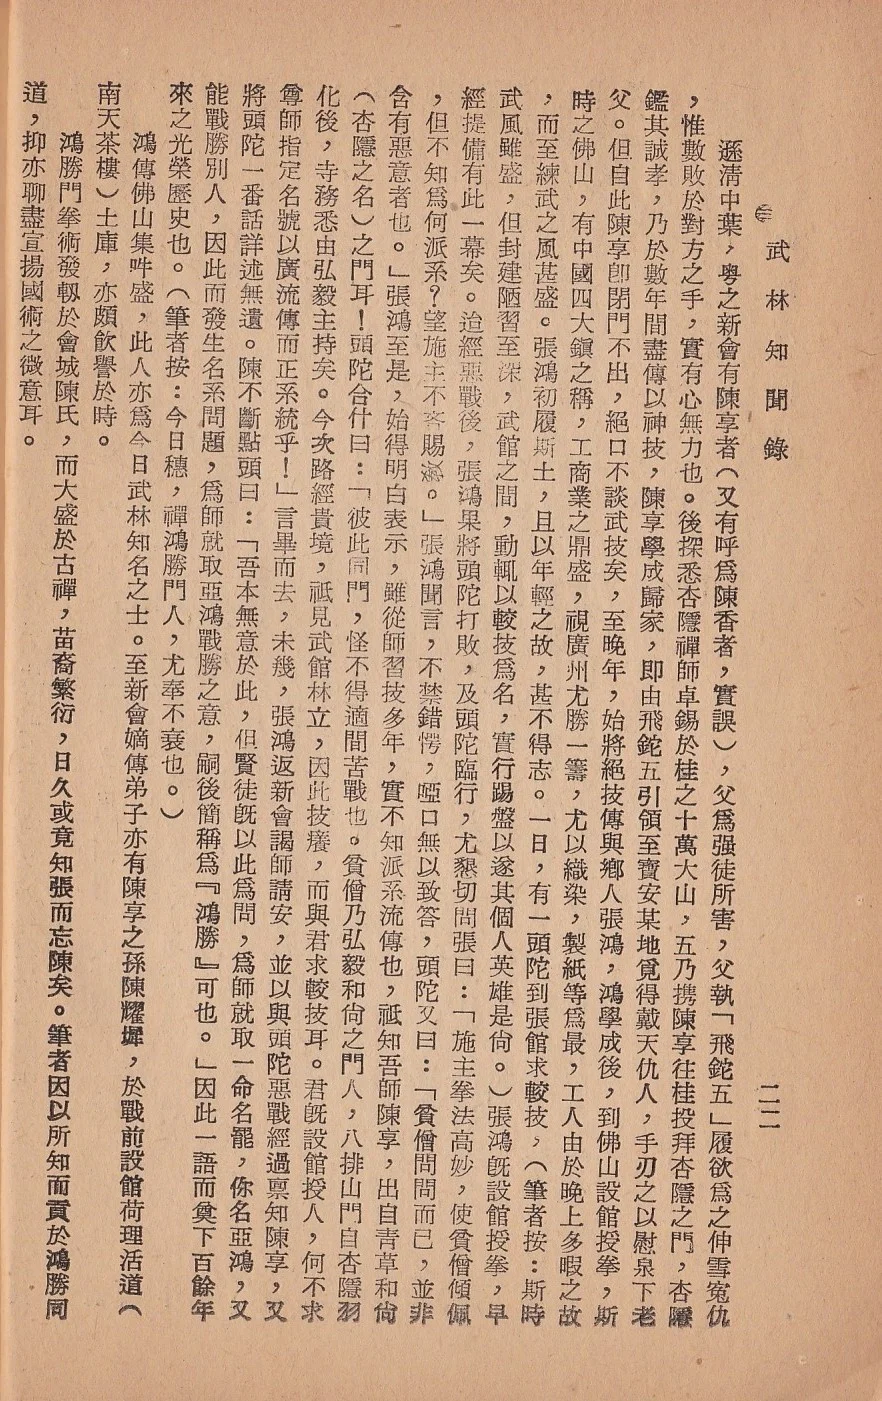 三 武林知聞錄
二二
遜清中葉，粵之新會有陳享者（又有呼爲陳香者，實誤），父爲强徒所害，父執「飛鉈五」履欲爲之伸雪寃仇
，惟數敗於對方之手，實有心無力也。後探悉杏隱禪師卓錫於桂之十萬大山，五乃携陳享往桂投拜杏隱之門，杏隱
鑑其誠孝，乃於數年間盡傳以神技，陳享學成歸家，即由飛鉈五引領至寶安某地覓得戴天仇人，手刃之以慰泉下老
父。但自此陳享卽閉門不出，絕口不談武技矣，至晚年，始將絕技傳與鄉人張鴻，鴻學成後，到佛山設館授拳，斯
時之佛山，有中國四大鎭之稱，工商業之鼎盛，視廣州尤勝一籌，尤以織染，製紙等爲最，工人由於晚上多暇之故
，而至練武之風甚盛。張鴻初履斯土，且以年輕之故，甚不得志。一日，有一頭陀到張館求較技，（筆者按：斯時
武風雖盛，但封建陋習至深，武館之間，動輒以較技爲名，實行踢盤以遂其個人英雄是尙。）張鴻旣設館授拳，早
經提備有此一幕矣。迨經惡戰後，張鴻果將頭陀打敗，及頭陀臨行，尤懇切問張曰：「施主拳法高妙，使貧僧傾佩
，但不知爲何派系？望施主不吝賜。」張鴻聞言，不禁錯愕，啞口無以致答，頭陀又曰：「貧僧問問而已，並非
含有惡意者也。」張鴻至是，始得明白表示，雖從師習技多年，實不知派系流傳也，祇知吾師陳享，出自靑草和尙
（杏隱之名）之門耳！頭陀合什曰：「彼此同門，怪不得適間苦戰也。貧僧乃弘毅和尙之門人，八排山門自杏隱羽
化後，寺務悉由弘毅主持矣。今次路經貴境，祇見武館林立，因此技癢，而與君求較技耳。君旣設館授人，何不求
尊師指定名號以廣流傳而正系統乎！」言畢而去，未幾，張鴻返新會謁師請安，並以與頭陀惡戰經過禀知陳享，又
將頭陀一番話詳述無遺。陳不斷點頭曰：「吾本無意於此，但賢徒旣以此爲問，爲師就取一命名罷，你名亞鴻，又
能戰勝別人，因此而發生名系問題，爲師就取亞鴻戰勝之意，嗣後簡稱爲『鴻勝』可也。」因此一語而奠下百餘年
來之光榮歷史也。（筆者按：今日穗，禪鴻勝門人，尤奉不衰也。）
鴻傳佛山集吽盛，此人亦爲今日武林知名之士。至新會嫡傳弟子亦有陳享之孫陳耀墀，於戰前設館荷理活道（
南天茶樓）土庫，亦頗飮譽於時。
鴻勝門拳術發軔於會城陳氏，而大盛於古禪，苗裔繁衍，日久或竟知張而忘陳矣。筆者因以所知而貢於鴻勝同
道，抑亦聊盡宣揚國術之微意耳。